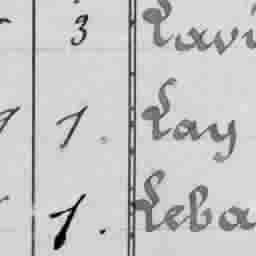 3 Lavi
1. Lay
1. Leba